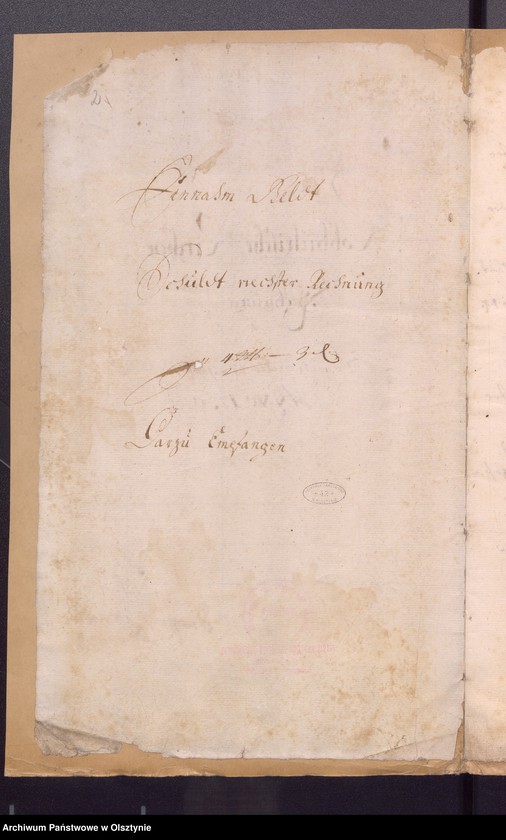 2
Einnahm Geldt
Schuldt nechster Rechnung
4 3
Darzu Empfangen
Archiwum Państwowe w Olsztynie